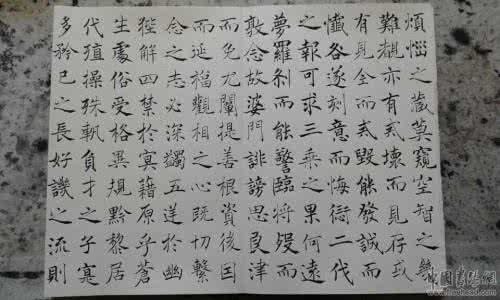 煩惱之蔵莫窺空智之
難覩亦有或壞而見存或
有見全而或毀能發誠而
懺咎遂刻意而悔衍二代
之報可求三乘之果何遠
夢羅剎而能警臨將殁而
敦念故婆門誹謗思良津
而免尤闡提善根資後囙
而延福觀相之心既切繫
念之志必深獨五逆於幽
狴解四禁於冥藉原乎蒼
生處俗受格異規黔黎居
代殖操殊軌負才之子寔
多矜已之長好譏之流則